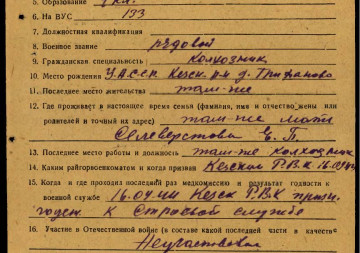 5. Образование
6. На ВУС 133
7. Должностная квалификация
8. Военное звание рядовой
9. Гражданская специальность колхозник
10. Место рождения У.А.С.С.Р. Кезск. р-н д. Трифаново
11. Последнее место жительства там-же
12. Где проживает в настоящее время семья (фамилия, имя и отчество жены или
родителей и точный их адрес) там-же мать
Селеверстова
13. Последнее место работы и должность там-же колхозник
14. Каким райгорвоенкоматом и когда призван Кезским Р.В.К. 16.0
15. Когда и где проходил последний раз медкомиссию и результат годности к
военной службе 16.04.44 Кезск Р.В.К призн.
годен. К Строевой службе
16. Участие в Отечественной войне (в составе какой последней части в качестве
Неучаствовал